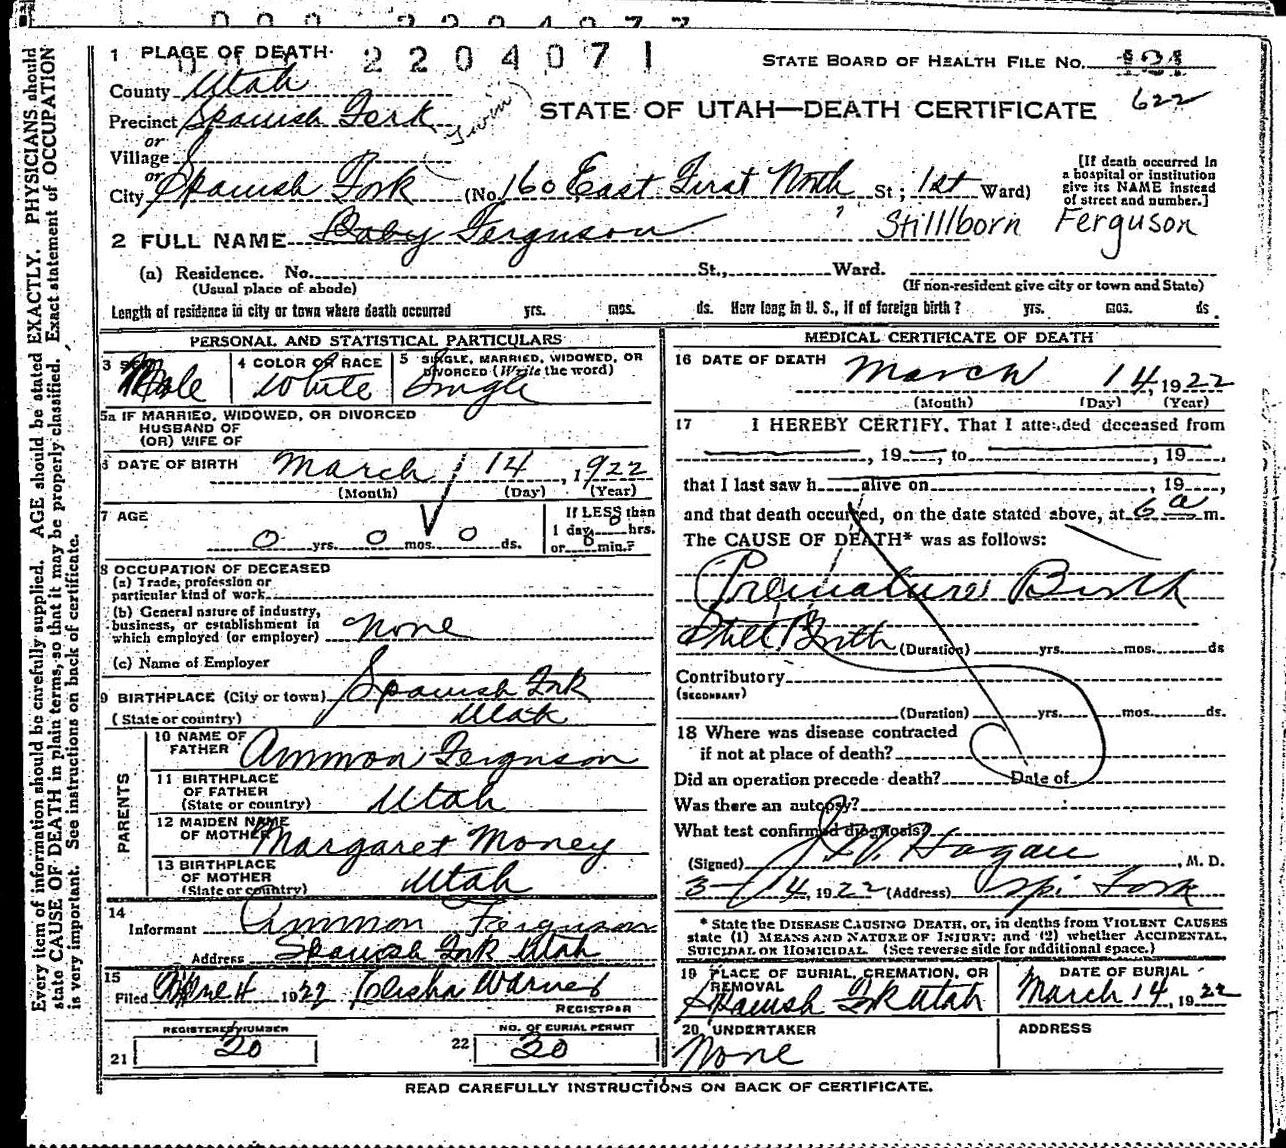 2204071
1 PLACE OF DEATH
STATE BOARD OF HEALTH FILE No.
County Utah
622
Precinct Spanish Fork
Twin
STATE OF UTAH—DEATH CERTIFICATE
or
Village
or
City Spanish Fork (No 160 East First North St; 1st Ward)
[If death occurred in
a hospital or institution
give its NAME instead
of street and number.]
2 FULL NAME Baby Ferguson Stilllborn Ferguson
(a) Residence. No. St., Ward.
(Usual place of abode) (If non-resident give city or town and State)
Length of residence in city or town where death occurred yrs. mos. ds. How long in U. S., if of foreign birth? yrs. mos. ds.
PERSONAL AND STATISTICAL PARTICULARS
3 SEX Male
4 COLOR OR RACE White
5 SINGLE, MARRIED, WIDOWED, OR
DIVORCED (Write the word) Single
5a IF MARRIED, WIDOWED, OR DIVORCED
HUSBAND OF
(OR) WIFE OF
6 DATE OF BIRTH March 14, 1922
(Month) (Day) (Year)
7 AGE 0 yrs. 0 mos. 0 ds.
If LESS than
1 day 0 hrs.
or 0 min.?
8 OCCUPATION OF DECEASED
(a) Trade, profession or
particular kind of work
(b) General nature of industry,
business, or establishment in
which employed (or employer) None
(c) Name of Employer
9 BIRTHPLACE (City or town) Spanish Fork
(State or country) Utah
PARENTS
10 NAME OF
FATHER Ammon Ferguson
11 BIRTHPLACE
OF FATHER
(State or country) Utah
12 MAIDEN NAME
OF MOTHER Margaret Money
13 BIRTHPLACE
OF MOTHER
(State or country) Utah
14
Informant Ammon Ferguson
Address Spanish Fork Utah
15
Filed April 4 1922 Elisha Warner
REGISTRAR
REGISTERED NUMBER
21 20
NO. OF BURIAL PERMIT
22 20
MEDICAL CERTIFICATE OF DEATH
16 DATE OF DEATH March 14, 1922
(Month) (Day) (Year)
17 I HEREBY CERTIFY, That I attended deceased from
, 19 , to , 19
that I last saw h alive on , 19
and that death occurred, on the date stated above, at 6 a m.
The CAUSE OF DEATH* was as follows:
Premature Birth
Still Birth (Duration) yrs. mos. ds
Contributory
(SECONDARY)
(Duration) yrs. mos. ds.
18 Where was disease contracted
if not at place of death?
Did an operation precede death? Date of
Was there an autopsy?
What test confirmed diagnosis?
(Signed) J. W. Hagan, M. D.
3-14, 1922 (Address) Spi Fork
* State the DISEASE CAUSING DEATH, or, in deaths from VIOLENT CAUSES
state (1) MEANS AND NATURE OF INJURY; and (2) whether ACCIDENTAL,
SUICIDAL OR HOMICIDAL. (See reverse side for additional space.)
19 PLACE OF BURIAL, CREMATION, OR
REMOVAL
Spanish Fk Utah
DATE OF BURIAL
March 14, 1922
20 UNDERTAKER
None
ADDRESS
READ CAREFULLY INSTRUCTIONS ON BACK OF CERTIFICATE.
Every item of information should be carefully supplied. AGE should be stated EXACTLY. PHYSICIANS should
state CAUSE OF DEATH in plain terms, so that it may be properly classified. Exact statement of OCCUPATION
is very important. See instructions on back of certificate.